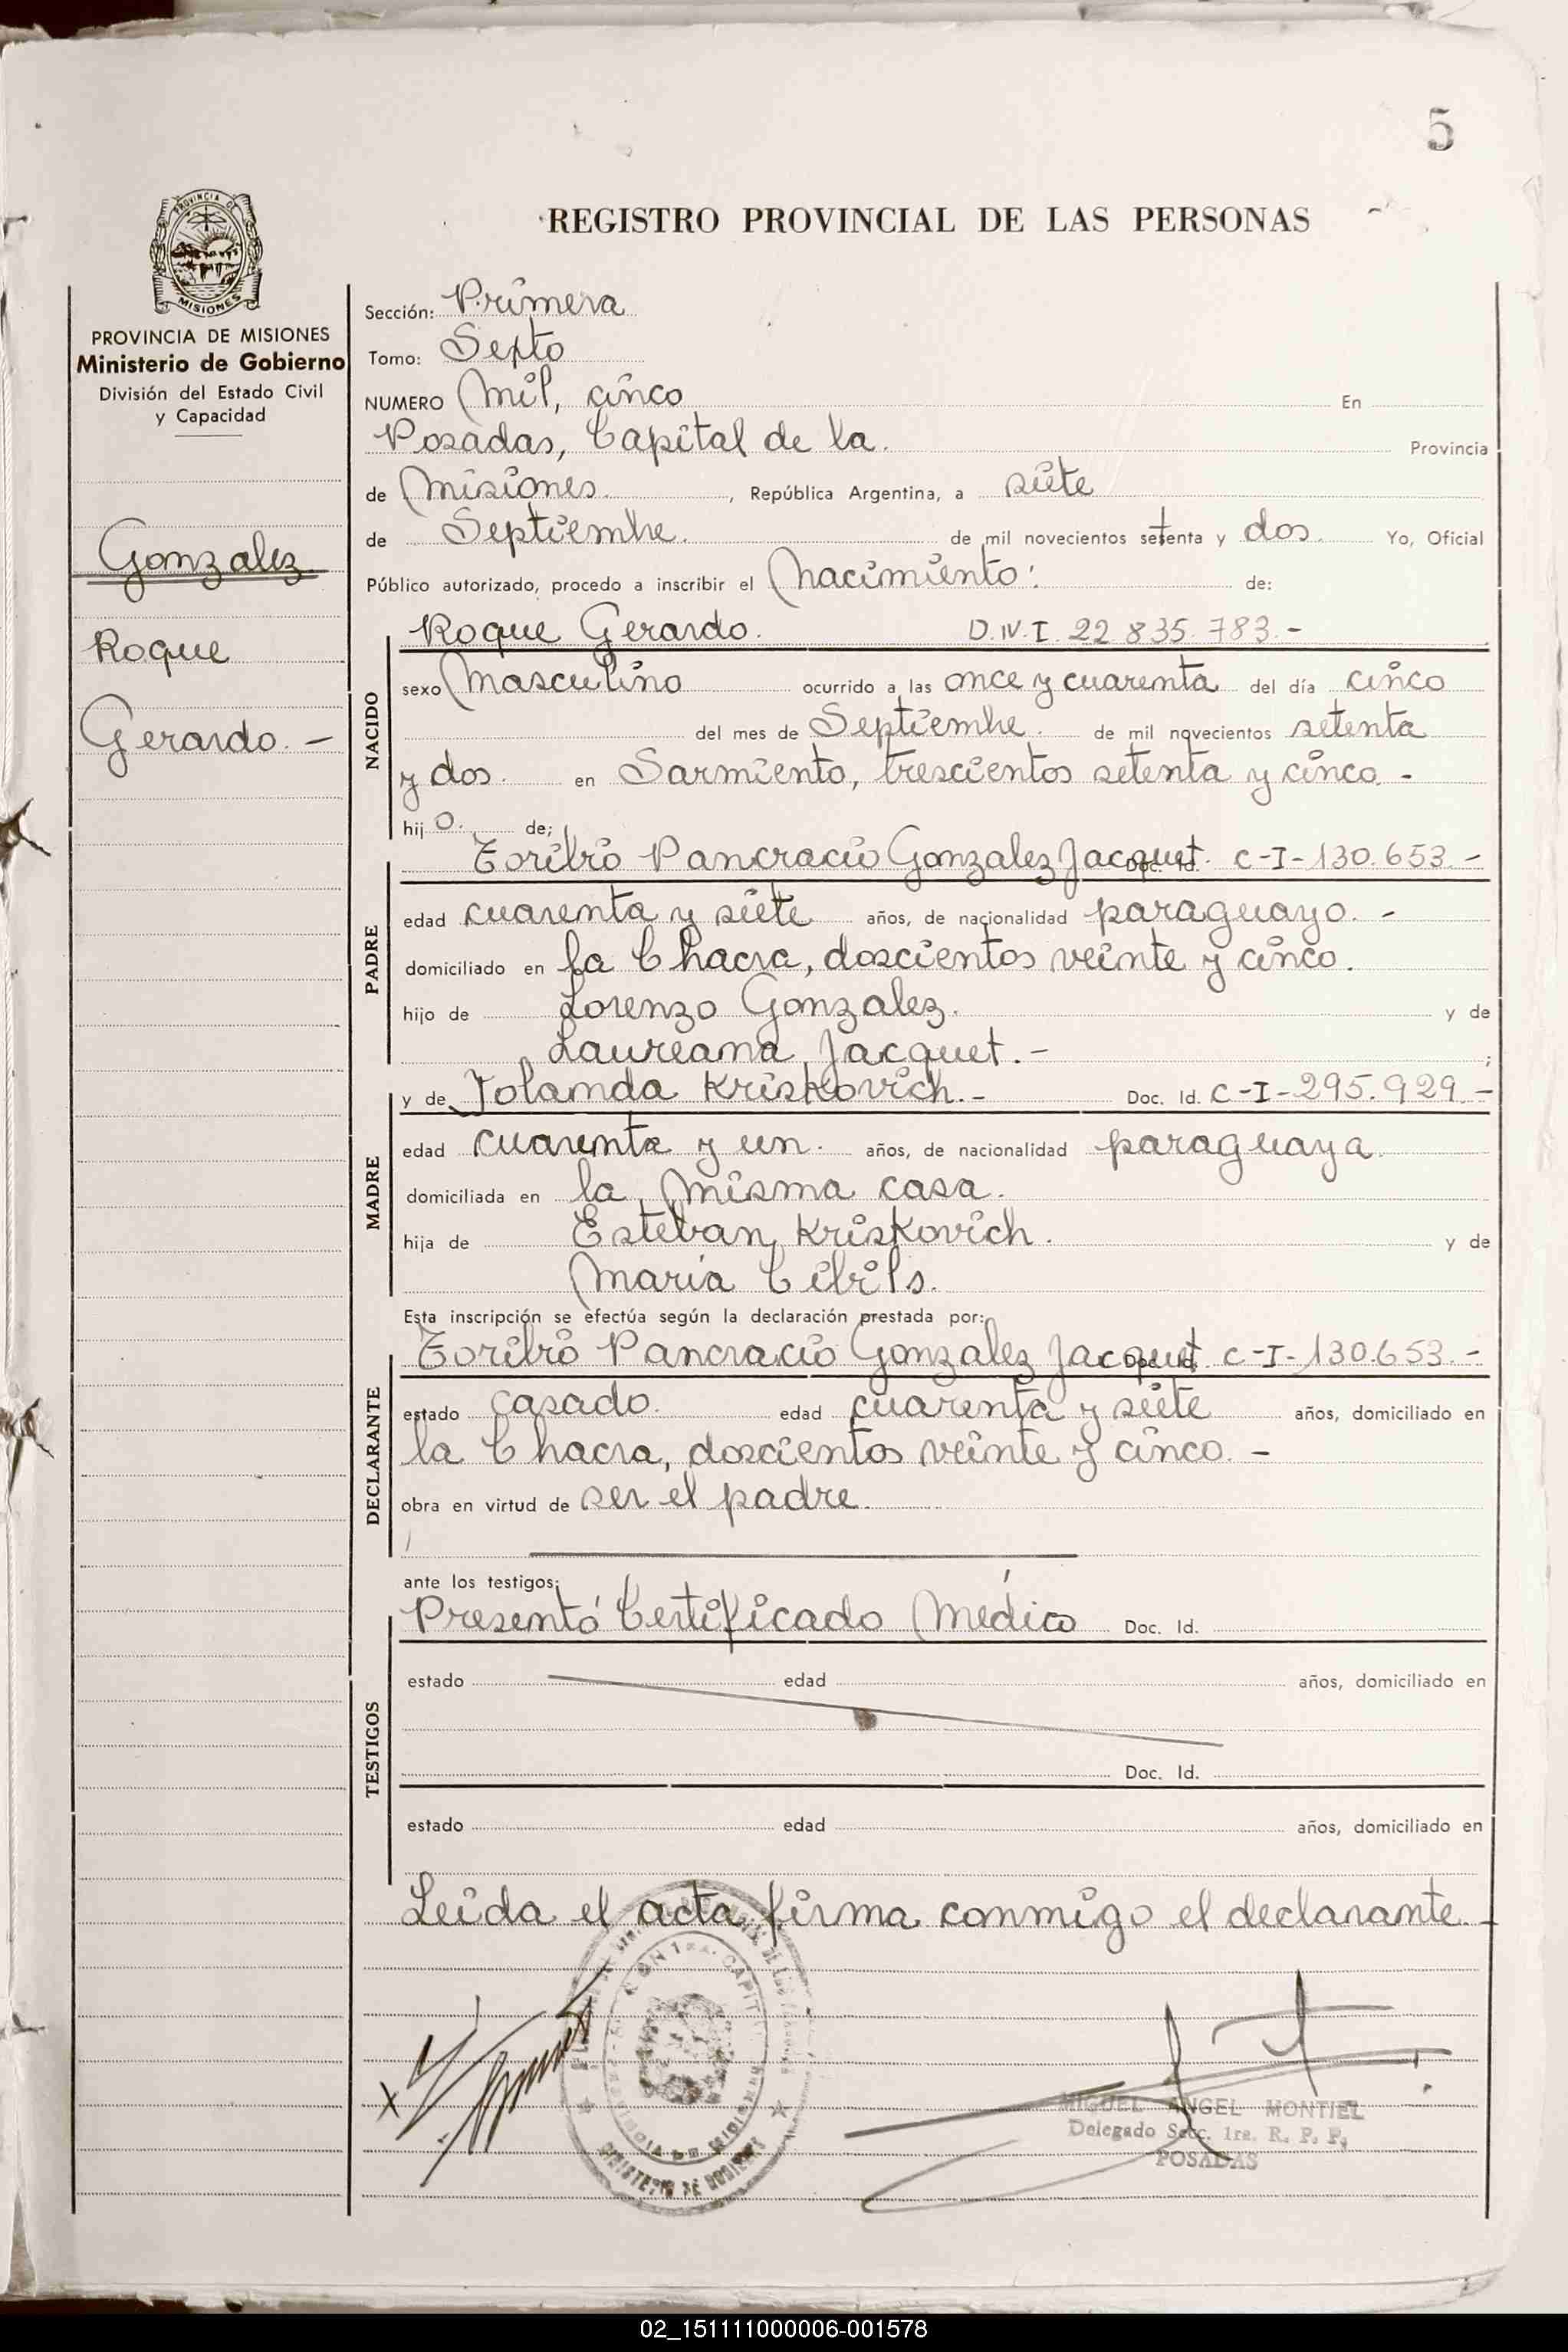 5
PROVINCIA DE
MISIONES
REGISTRO PROVINCIAL DE LAS PERSONAS
PROVINCIA DE MISIONES
Ministerio de Gobierno
División del Estado Civil
y Capacidad
Gonzalez
Roque
Gerardo. -
Sección: Primera
Tomo: Sexto
NUMERO Mil, cinco En
Posadas, Capital de la. Provincia
de Misiones. , República Argentina, a siete
de Septiembre. de mil novecientos setenta y dos. Yo, Oficial
Público autorizado, procedo a inscribir el Nacimiento: de:
Roque Gerardo. D.N.I. 22 835.783.-
NACIDO
sexo Masculino ocurrido a las once y cuarenta del día cinco
del mes de Septiembre. de mil novecientos setenta
y dos. en Sarmiento, trescientos setenta y cinco. -
hij o. de;
Toribio Pancracio Gonzalez Jacquet. Doc. Id. C-I-130.653.-
PADRE
edad cuarenta y siete años, de nacionalidad paraguayo. -
domiciliado en la Chacra, doscientos veinte y cinco.
hijo de Lorenzo Gonzalez. y de
Laureana Jacquet. - ;
y de Yolanda Kriskovich. - Doc. Id. C-I-295.929.-
MADRE
edad cuarenta y un. años, de nacionalidad paraguaya.
domiciliada en la misma casa.
hija de Esteban Kriskovich. y de
María Cibils.
Esta inscripción se efectúa según la declaración prestada por:
Toribio Pancracio Gonzalez Jacquet. Doc. Id. C-I-130.653.-
DECLARANTE
estado casado. edad cuarenta y siete años, domiciliado en
la Chacra, doscientos veinte y cinco. -
obra en virtud de ser el padre.
ante los testigos:
Presentó Certificado Médico Doc. Id.
TESTIGOS
estado edad años, domiciliado en
Doc. Id.
estado edad años, domiciliado en
Leída el acta firma conmigo el declarante. -
MINISTERIO DE GOBIERNO
MIGUEL ANGEL MONTIEL
Delegado Secc. 1ra. R. P. P.
POSADAS
02_151111000006-001578